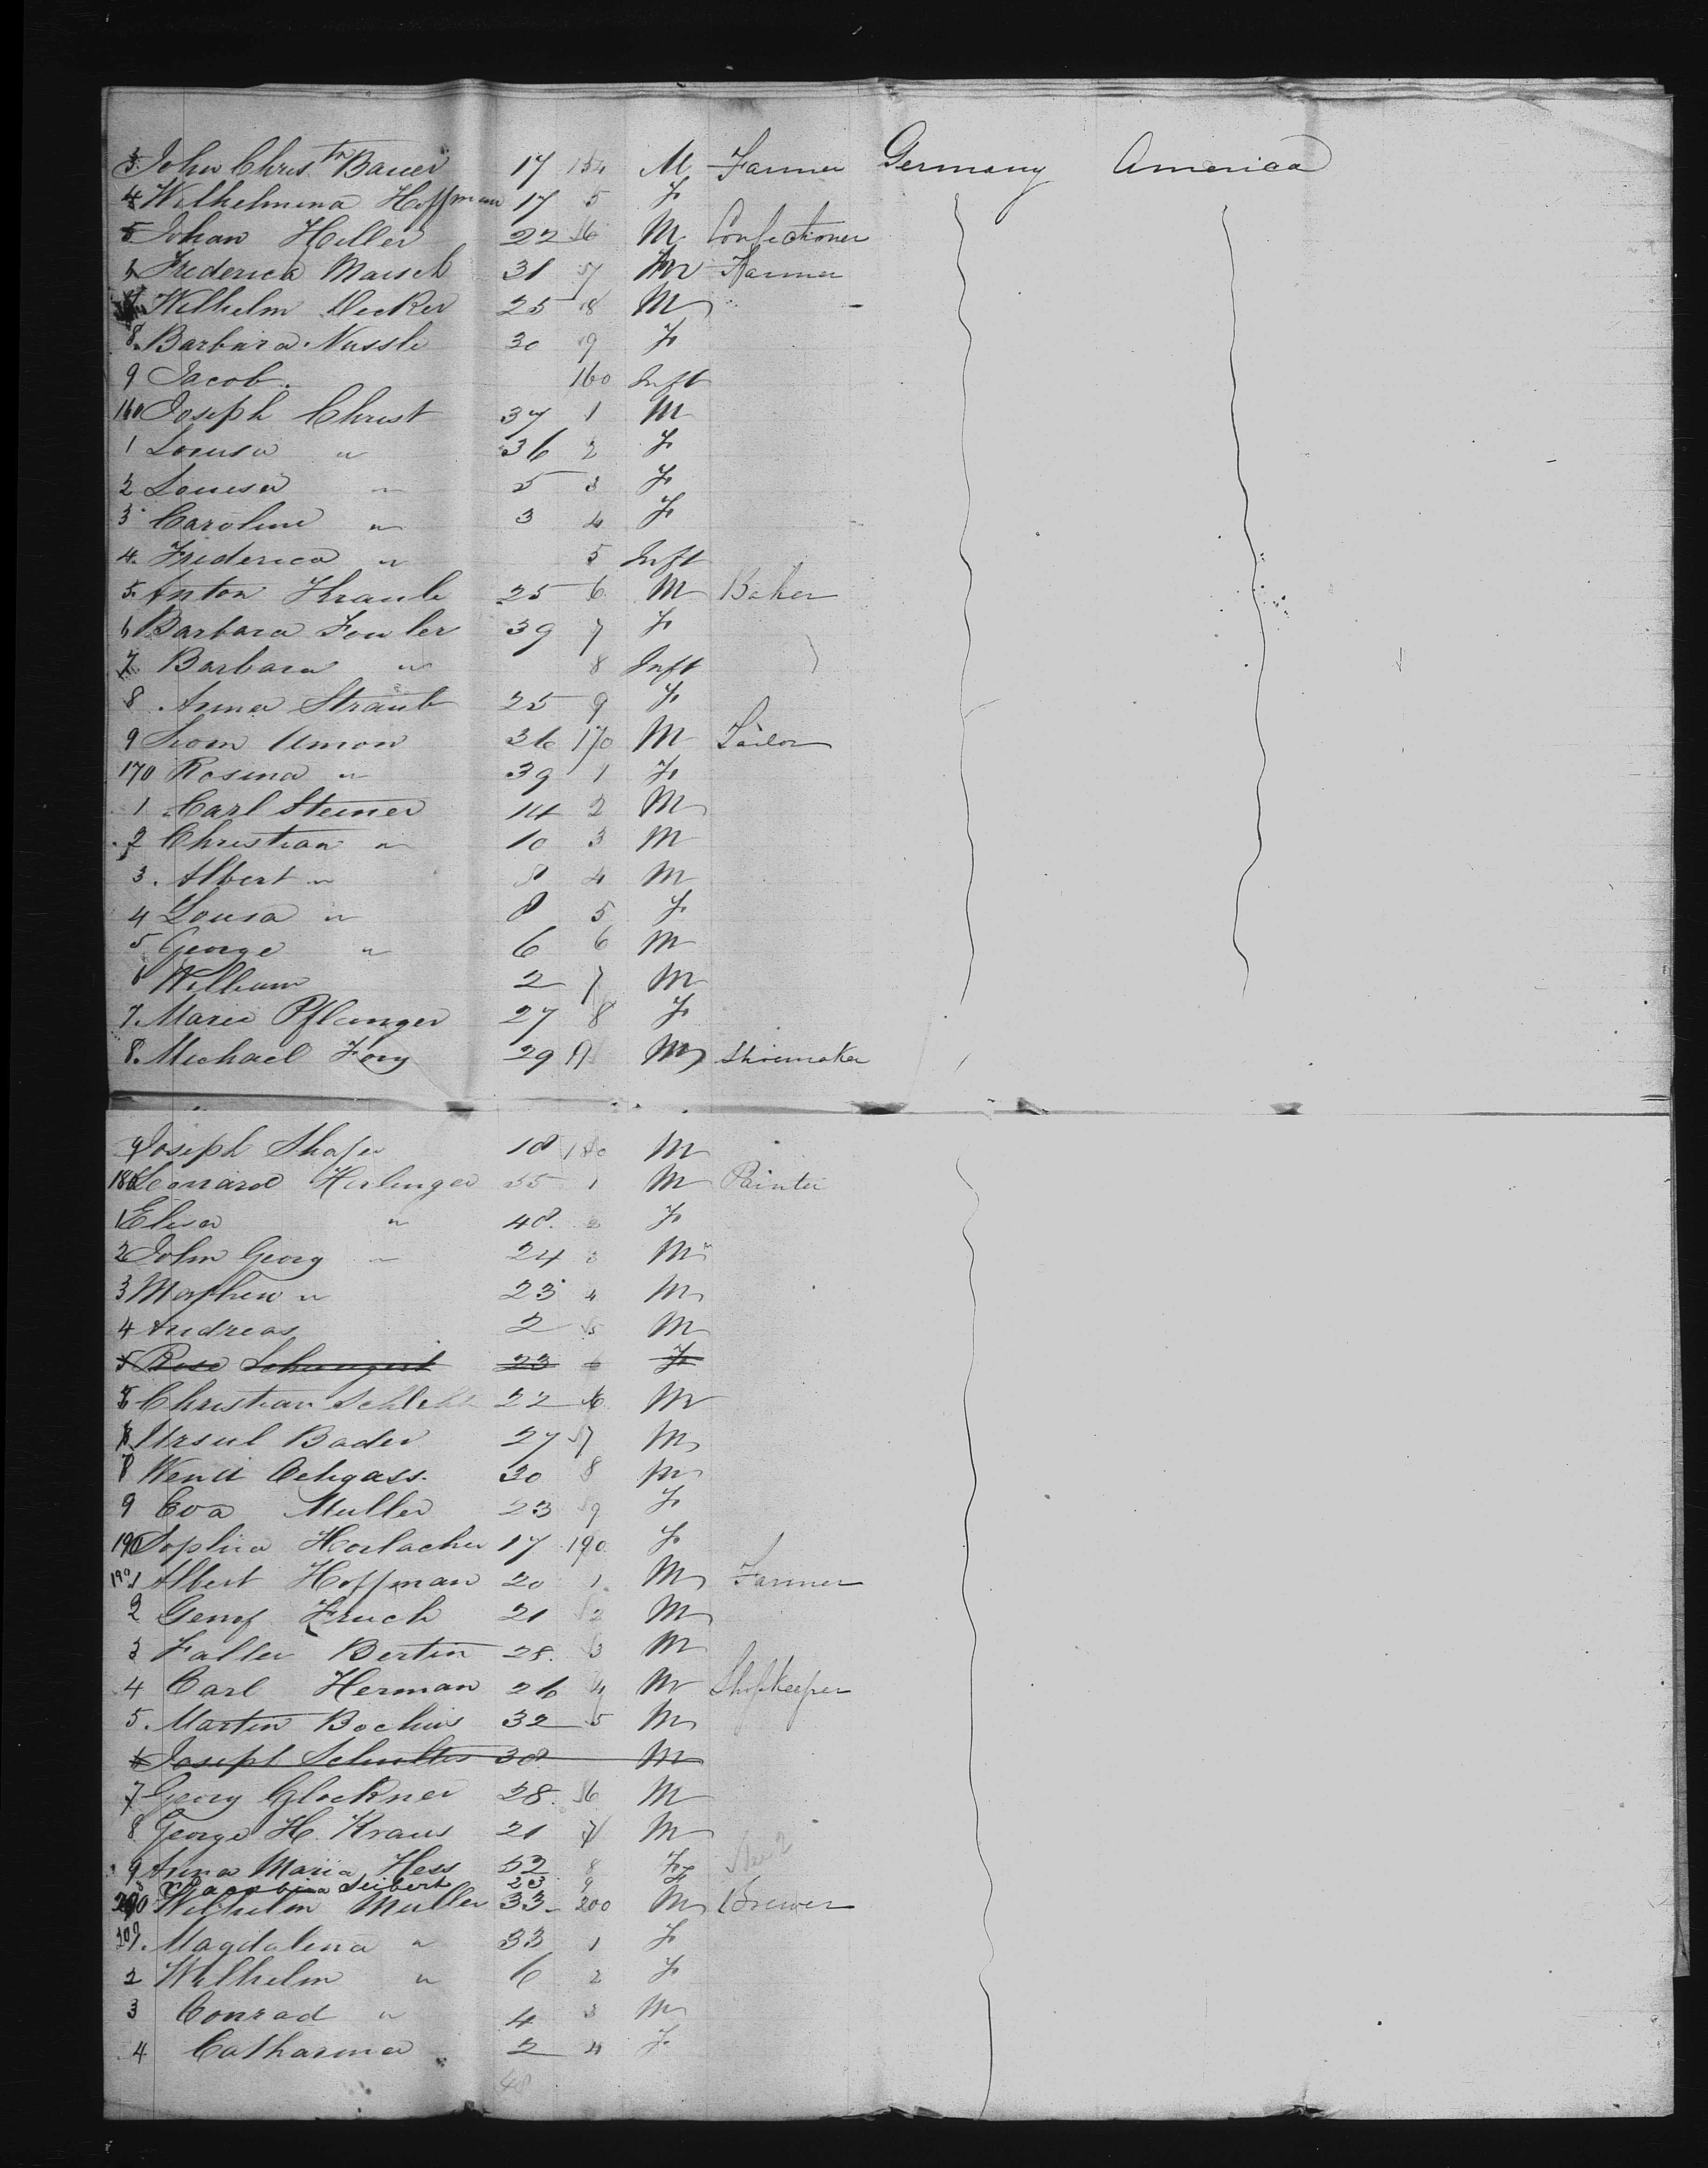 3 John Christn Bauer 17 154 M Farmer Germany America
4 Wilhelmina Hoffman 17 5 F
5 Johan Heller 22 56 M Confectioner
Frederica Maisch 31 57 M Farmer
7 Wilhelm Decker 25 58 M "
8 Barbara Nussle 30 59 F
9 Jacob 160 Inft
160 Joseph Christ 37 1 M
1 Lousa " 36 2 F
2 Louisa " 5 3 F
3 Caroline " 3 4 F
4 Frederica " 5 Inft
5 Anton Kraule 25 6 M Baker
6 Barbara Fowler 39 7 F
7 Barbara " 8 Inft
8 Anna Straub 25 9 F
9 Amon 36 170 M Tailor
170 Rosina " 39 1 F
1 Carl Steiner 14 2 M
2 Christian " 10 3 M
3 Albert " 8 4 M
4 Lousa " 8 5 F
5 George " 6 6 M
6 William 2 7 M
7 Marie Pflanger 27 8 F
8 Michael Fory 29 9 M Shoemaker
9 Joseph Shafer 18 180 M
180 Leonard Herlinger 55 1 M Painter
1 Elisa " 48 2 F
2 John Georg " 24 3 M
3 " 23 4 M
4 Andreas 2 5 M
5 Rosa 23 6 F
Christian 22 6 M
Ursul Bader 27 7 M
8 Wendl 30 8 M
9 Eva Muller 23 9 F
190 Sophia Horlacher 17 190 F
190 1 Albert Hoffman 20 1 M Farmer
2 21 2 M
3 Faller Bertin 28 3 M
4 Carl Herman 26 4 M Shopkeeper
5 Martin Bochius 32 5 M
6 Joseph Schultes 38 M
7 Georg Glockner 28 6 M
8 George H. Kraus 21 7 M
9 Anna Maria Hess 52 8 F
Jacobina Seibert 23 9 F
200 Wilhelm Muller 33 200 M Brewer
201 Magdalena " 33 1 F
2 Wilhelm " 6 2 F
3 Conrad " 4 3 M
4 Catharina 2 4 F
48